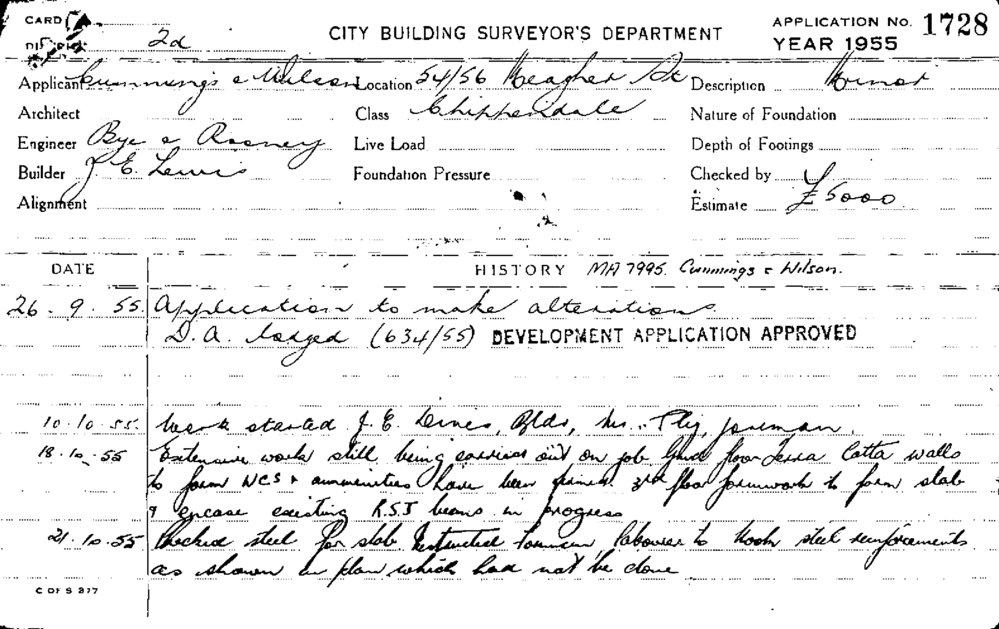 CARD
CITY BUILDING SURVEYOR'S DEPARTMENT
APPLICATION No. 1728
DISTRICT 2d
YEAR 1955
Applicant Cummings & Wilson Location 54/56 Meagher St Description Minor
Architect Class Chippendale Nature of Foundation
Engineer Bye & Rooney Live Load Depth of Footings
Builder J. E. Lewis Foundation Pressure Checked by
Alignment Estimate £5000
DATE HISTORY MA 7995. Cummings & Wilson.
26.9.55 Application to make alterations.
D.A. lodged (634/55) DEVELOPMENT APPLICATION APPROVED
10.10.55. Work started J. E. Lewis, Bldr, Mr. foreman.
18.10.55 Extensive work still being carried out on job Grnd floor Terra Cotta walls
to form WCS & ammenities have been 3rd floor formwork to form slab
& encase existing R.S.J beams in progress
21.10.55 Checked steel for slab. Instructed labourer to hook steel reinforcements
as shown on plan which had not be done
C OF S 377